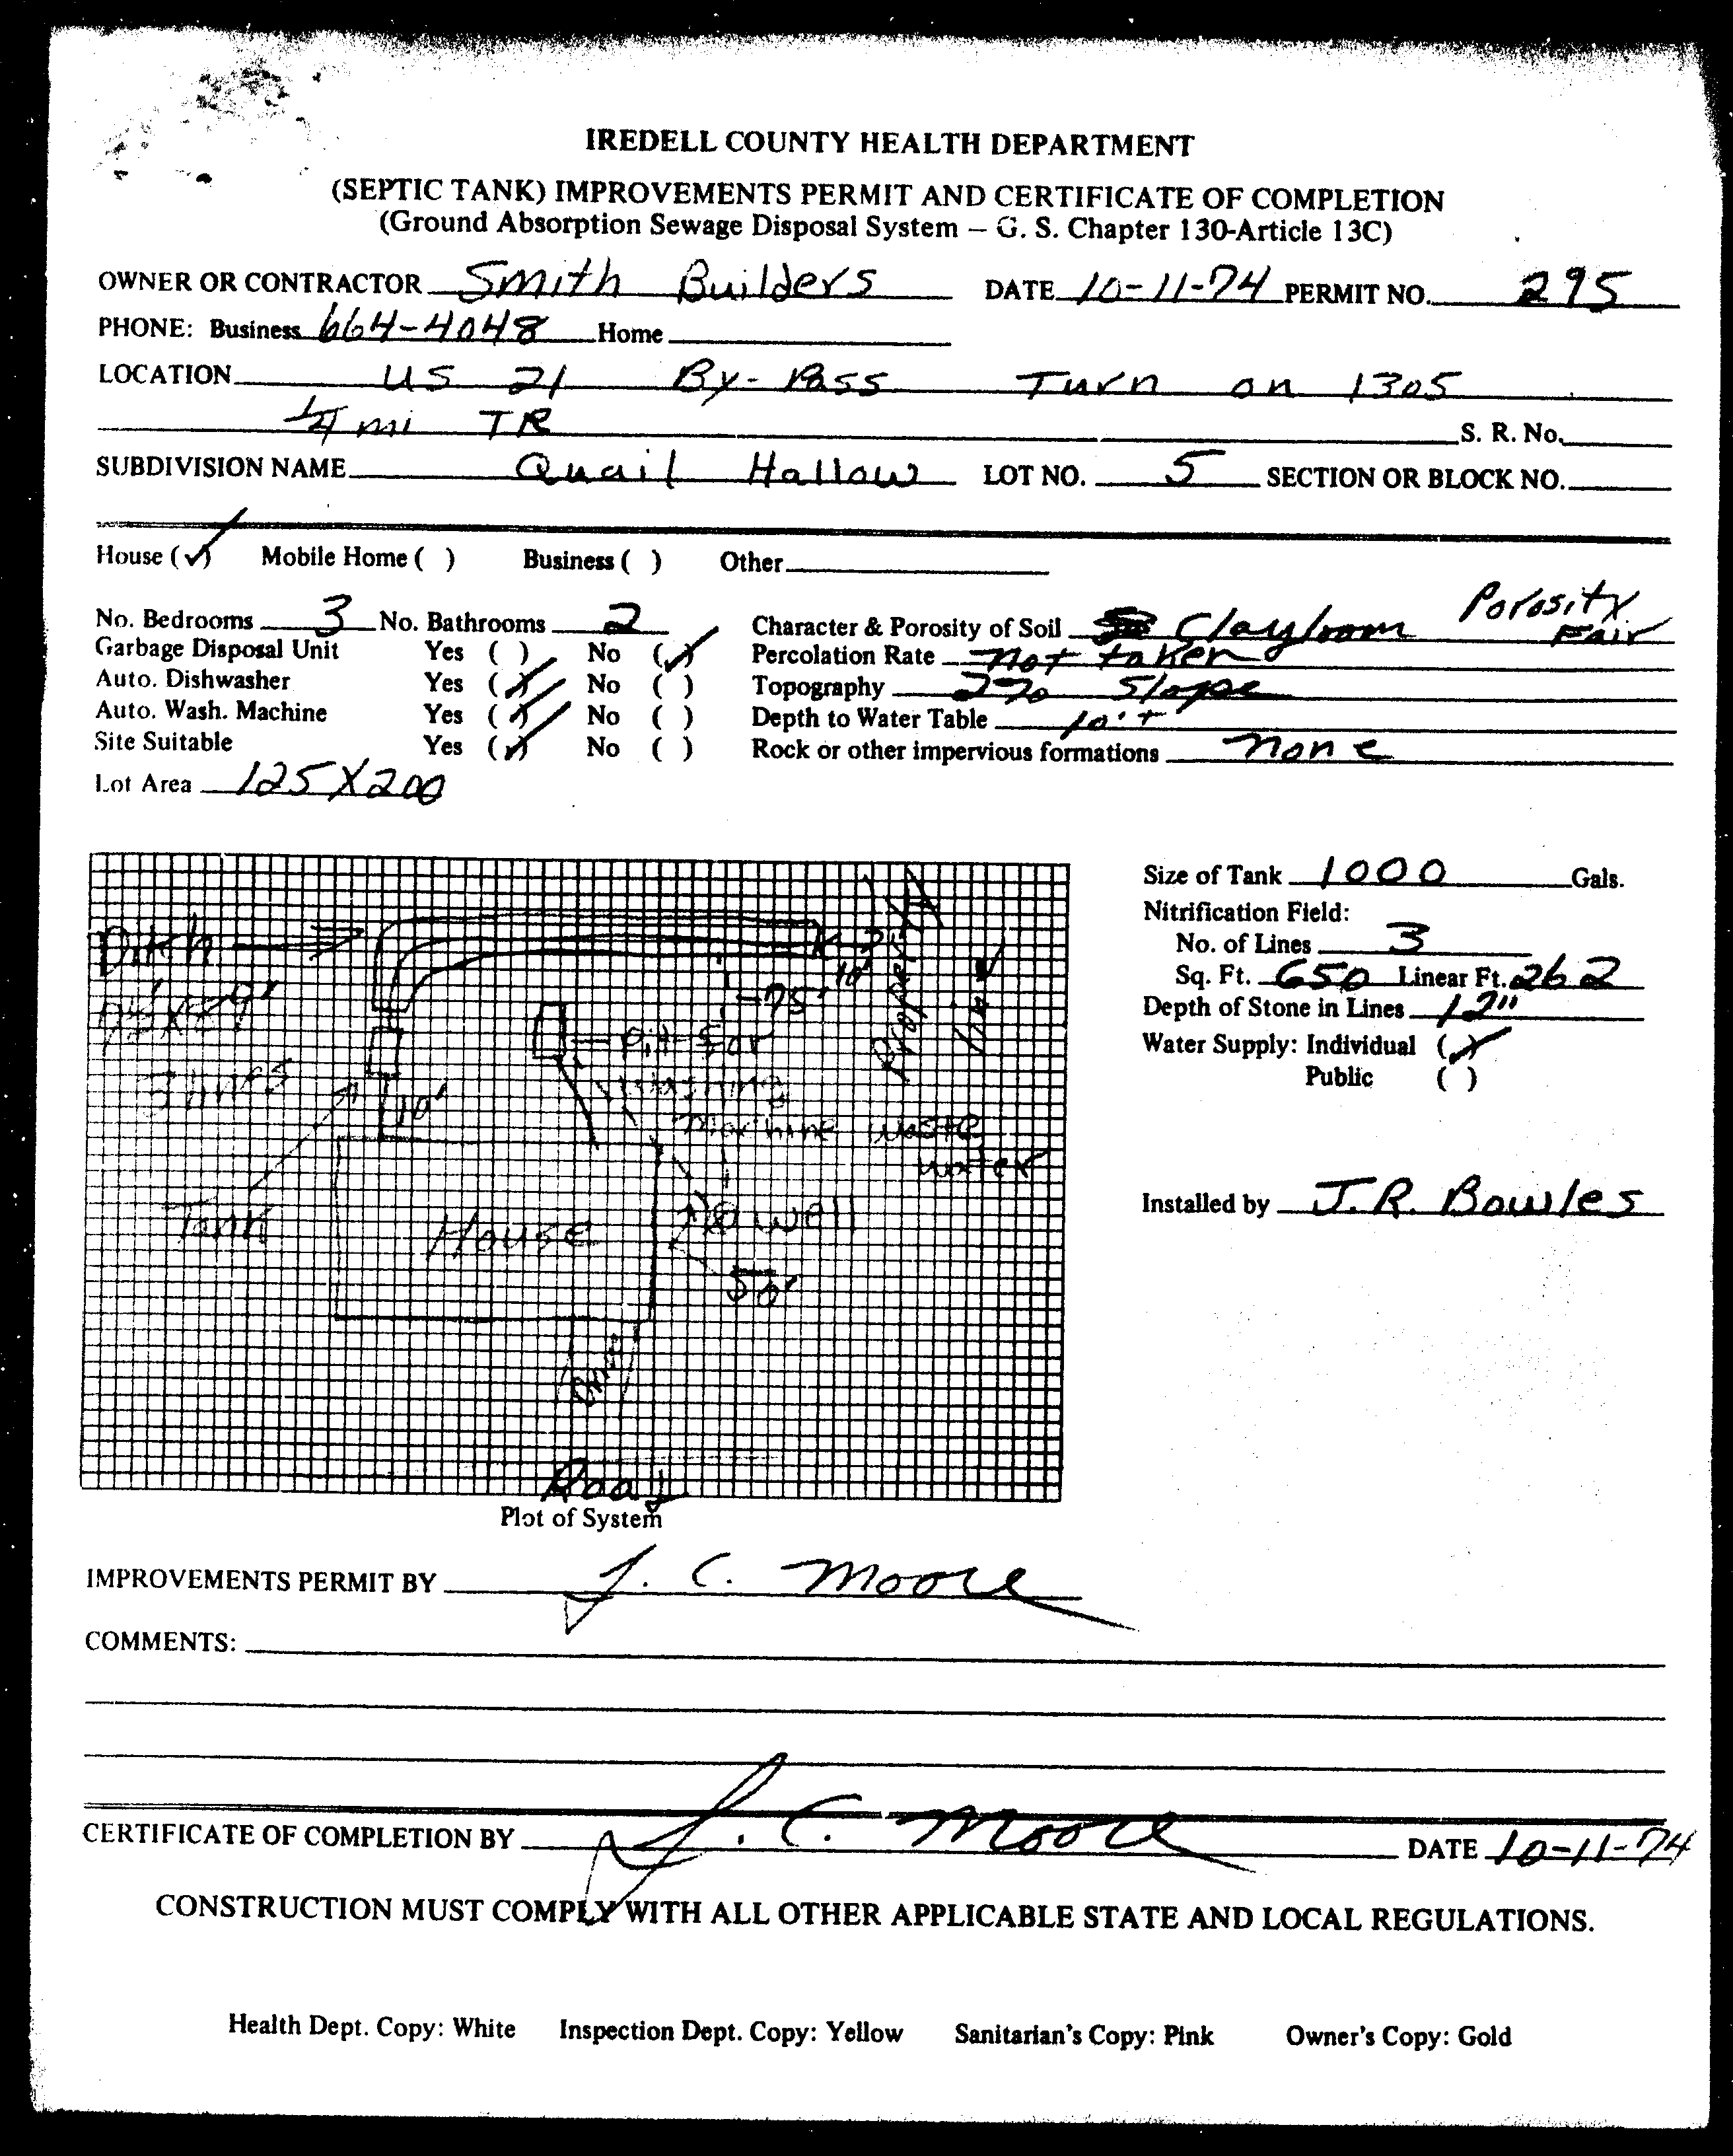 IREDELL COUNTY HEALTH DEPARTMENT
(SEPTIC TANK) IMPROVEMENTS PERMIT AND CERTIFICATE OF COMPLETION
(Ground Absorption Sewage Disposal System – G. S. Chapter 130-Article 13C)
OWNER OR CONTRACTOR Smith Builders DATE 10-11-74 PERMIT NO. 295
PHONE: Business 664-4048 Home
LOCATION US 21 By-Pass Turn on 1305
1/4 mi TR S. R. No.
SUBDIVISION NAME Quail Hallow LOT NO. 5 SECTION OR BLOCK NO.
House (✓) Mobile Home ( ) Business ( ) Other
No. Bedrooms 3 No. Bathrooms 2 Character & Porosity of Soil Clayloam Porosity Fair
Garbage Disposal Unit Yes ( ) No (✓) Percolation Rate not taken
Auto. Dishwasher Yes (✓) No ( ) Topography 2% Slope
Auto. Wash. Machine Yes (✓) No ( ) Depth to Water Table 10'+
Site Suitable Yes (✓) No ( ) Rock or other impervious formations none
Lot Area 125X200
Size of Tank 1000 Gals.
Nitrification Field:
No. of Lines 3
Sq. Ft. 650 Linear Ft. 262
Depth of Stone in Lines 12"
Water Supply: Individual (✓)
Public ( )
Installed by J.R. Bowles
Ditch
3 lines
10'
75'
Property
line
Pit for
washing
machine waste
water
10'
Tank
House
well
50'
Drive
Road
Plot of System
IMPROVEMENTS PERMIT BY J. C. Moore
COMMENTS:
CERTIFICATE OF COMPLETION BY J. C. Moore DATE 10-11-74
CONSTRUCTION MUST COMPLY WITH ALL OTHER APPLICABLE STATE AND LOCAL REGULATIONS.
Health Dept. Copy: White Inspection Dept. Copy: Yellow Sanitarian's Copy: Pink Owner's Copy: Gold